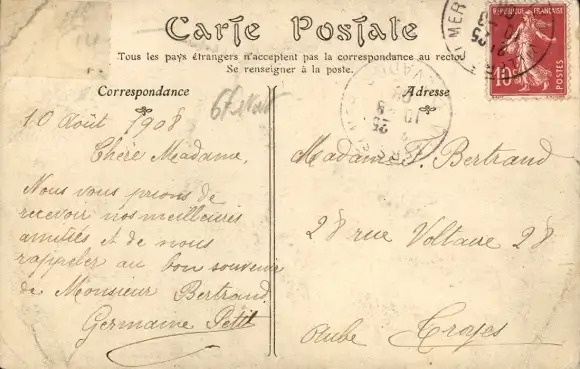 Carte Postale
Tous les pays étrangers n'acceptent pas la correspondance au recto
Se renseigner à la poste.
Correspondance
Adresse
10 Août 1908
Chère Madame,
Nous vous prions de
recevoir nos meilleures
amitiés et de nous
rappeler au bon souvenir
de Monsieur Bertrand
Germaine Petit
Madame F. Bertrand
28 rue Voltaire 28
Aube Troyes
REPUBLIQUE FRANÇAISE
10
POSTES
MER